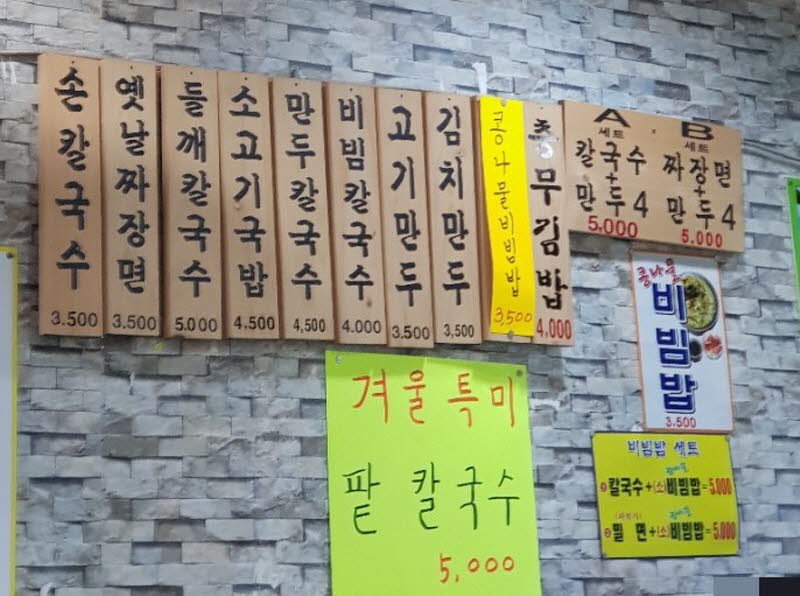 손칼국수
3.500
옛날짜장면
3.500
들깨칼국수
5.000
소고기국밥
4,500
만두칼국수
4,500
비빔칼국수
4.000
고기만두
3.500
김치만두
3,500
콩나물비빔밥
3,500
충무김밥
4,000
A
세트
칼국수
+
만두4
5.000
B
세트
짜장면
+
만두4
5.000
콩나물
비빔밥
3.500
겨울특미
팥 칼국수
5,000
비빔밥 세트
칼국수+(소)비빔밥=5.000
밀 면+(소)비빔밥=5.000